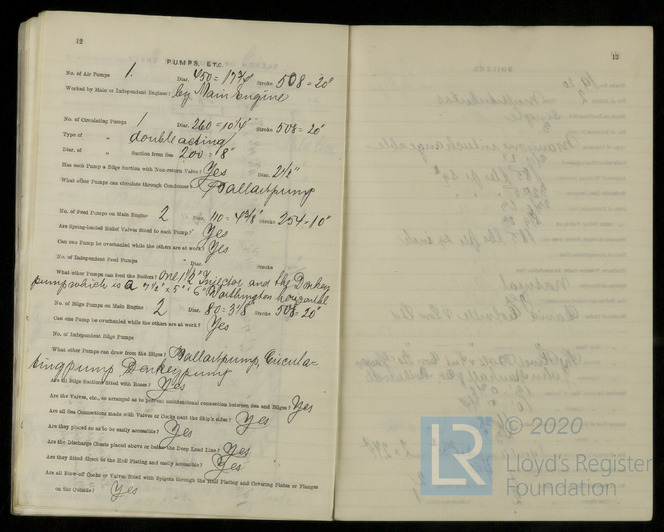 12
PUMPS, ETC.
No. of Air Pumps 1. Diar. 450 = 17¾" Stroke 508 = 20"
Worked by Main or Independent Engines? by Main Engine
No. of Circulating Pumps 1 Diar. 260 = 10¼" Stroke 508 = 20"
Type of " double acting
Diar. of " Suction from Sea 200 = 8"
Has each Pump a Bilge Suction with Non-return Valve? Yes Diar. 2½"
What other Pumps can circulate through Condenser? Ballastpump
No. of Feed Pumps on Main Engine 2 Diar. 110 = 4⅜" Stroke 254 = 10"
Are Spring-loaded Relief Valves fitted to each Pump? Yes
Can one Pump be overhauled while the others are at work? Yes
No. of Independent Feed Pumps Diar. Stroke
What other Pumps can feed the Boilers? One 1½" injector and the Donkey
pump which is a 7½" × 5" × 6" Worthington horizontal
No. of Bilge Pumps on Main Engine 2 Diar. 80 = 3⅛ Stroke 508 = 20"
Can one Pump be overhauled while the others are at work? Yes
No. of Independent Bilge Pumps
What other Pumps can draw from the Bilges? Ballastpump, Circula-
tingpump Donkeypump
Are all Bilge Suctions fitted with Roses? Yes
Are the Valves, etc., so arranged as to prevent unintentional connection between Sea and Bilges? Yes
Are all Sea Connections made with Valves or Cocks next the Ship's sides? Yes
Are they placed so as to be easily accessible? Yes
Are the Discharge Chests placed above or below the Deep Load Line? Yes
Are they fitted direct to the Hull Plating and easily accessible? Yes
Are all Blow-off Cocks or Valves fitted with Spigots through the Hull Plating and Covering Plates or Flanges
on the Outside? Yes
13
© 2020
LR
Lloyd's Register
Foundation